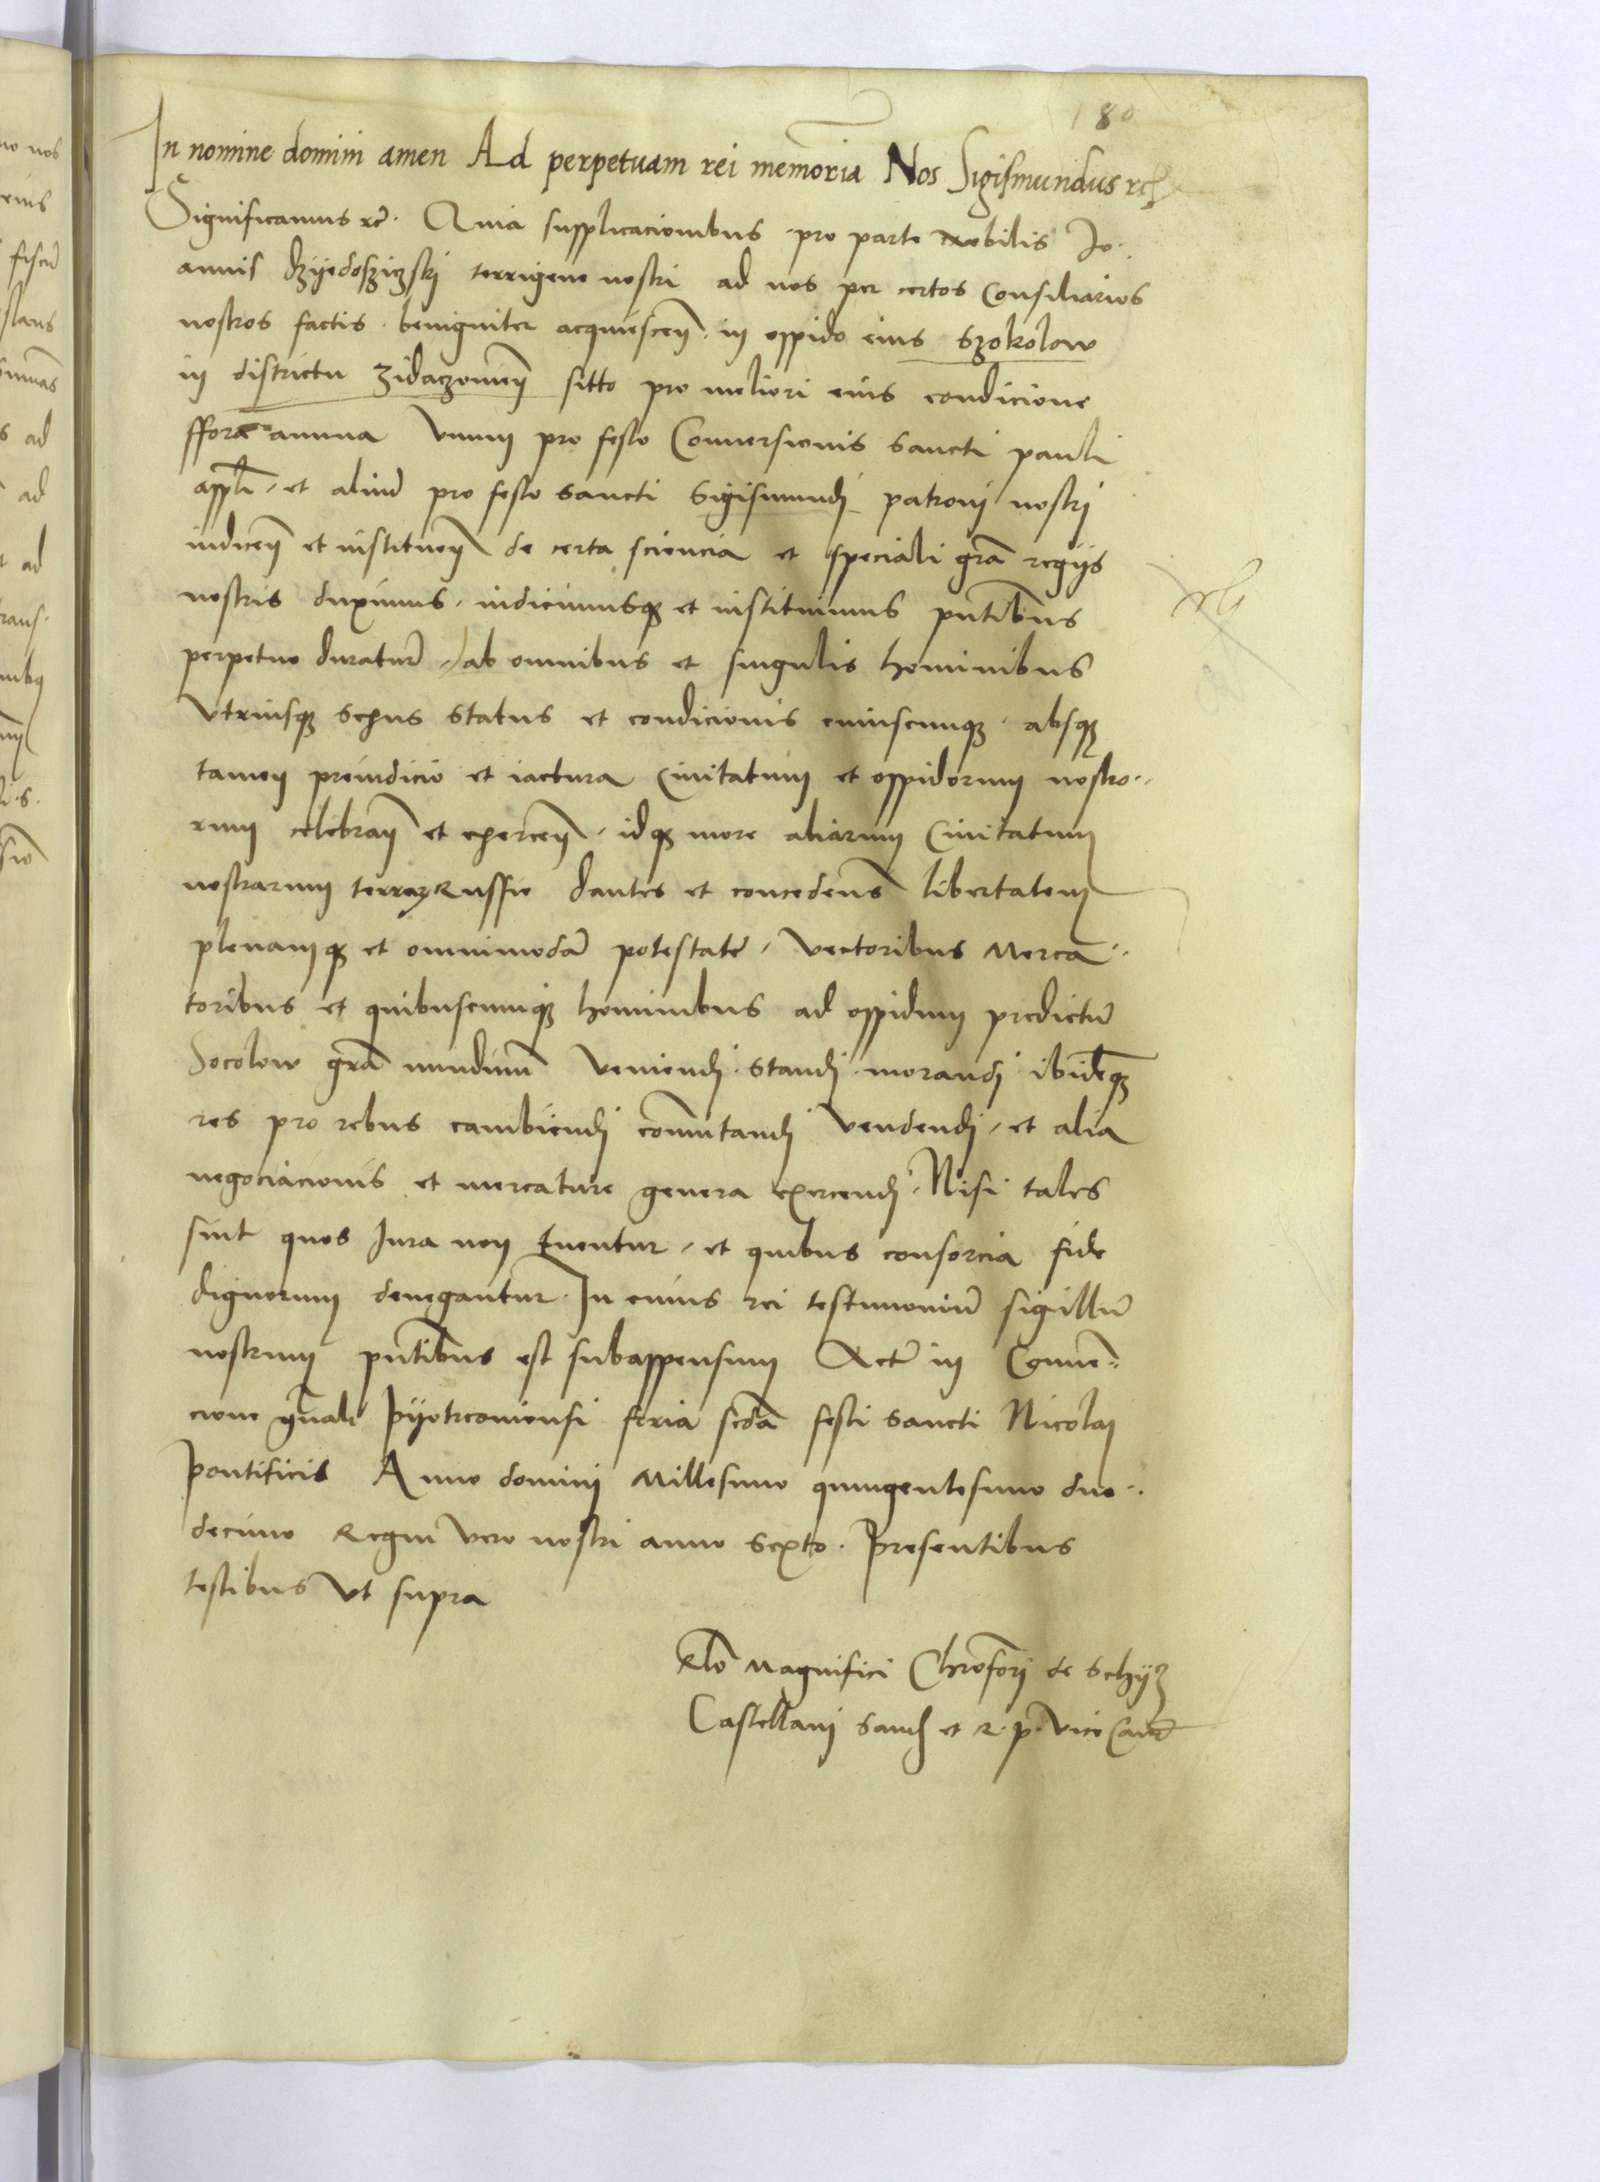 180
In nomine domini amen Ad perpetuam rei memoria Nos Sigismundus rc
Significamus rc. Quia supplicacionibus pro parte nobilis Jo..
annis dzyedosziczskj terrigene nostri ad nos per certos Consiliarios
nostros factis benigniter acquiescen in oppido eius Szokolow
in districtu zidaczouien sitto pro meliori eius condicione
ffora annua vnum pro festo Conuersionis sancti pauli
appli, et aliud pro festo sancti Sigismundj patronj nostrj
indicen et instituen de certa sciencia et speciali gra regijs
nostris duximus, indicimusq et instituimus pntibus
perpetue duratur, ab omnibus et singulis hominibus
vtriusq sexus status et condicionis cuiuscumq. absq
tamen preiudicio et iactura Ciuitatum et oppidorum nostro..
rum celebran et exercen, idq more aliarum Ciuitatum
nostrarum terraz Russie dantes et concedens libertatem
plenamq et omnimoda potestate, vectoribus Merca..
toribus et quibuscumq hominibus ad oppidum predictu
Socolow gra nundinu veniendj standj morandj ibideq
res pro rebus cambiendj comutandj vendendj, et alia
negociacionis et mercature genera exercendj. Nisi tales
sint quos Jura non tuentur, et quibus consorcia fide
dignorum denegantur. In cuius rei testimoniu sigillu
nostrum pntibus est subappensum Actu in Conuen..
cione gnali pyotrcouiensi feria scda festi sancti Nicolaj
pontificis Anno dominj Millesimo quingentesimo duo..
decimo Regni vero nostri anno sexto. presentibus
testibus vt supra
Rlo Magnifici Chrofori de Schyd
Castellanj sand et R. p. vice Canc